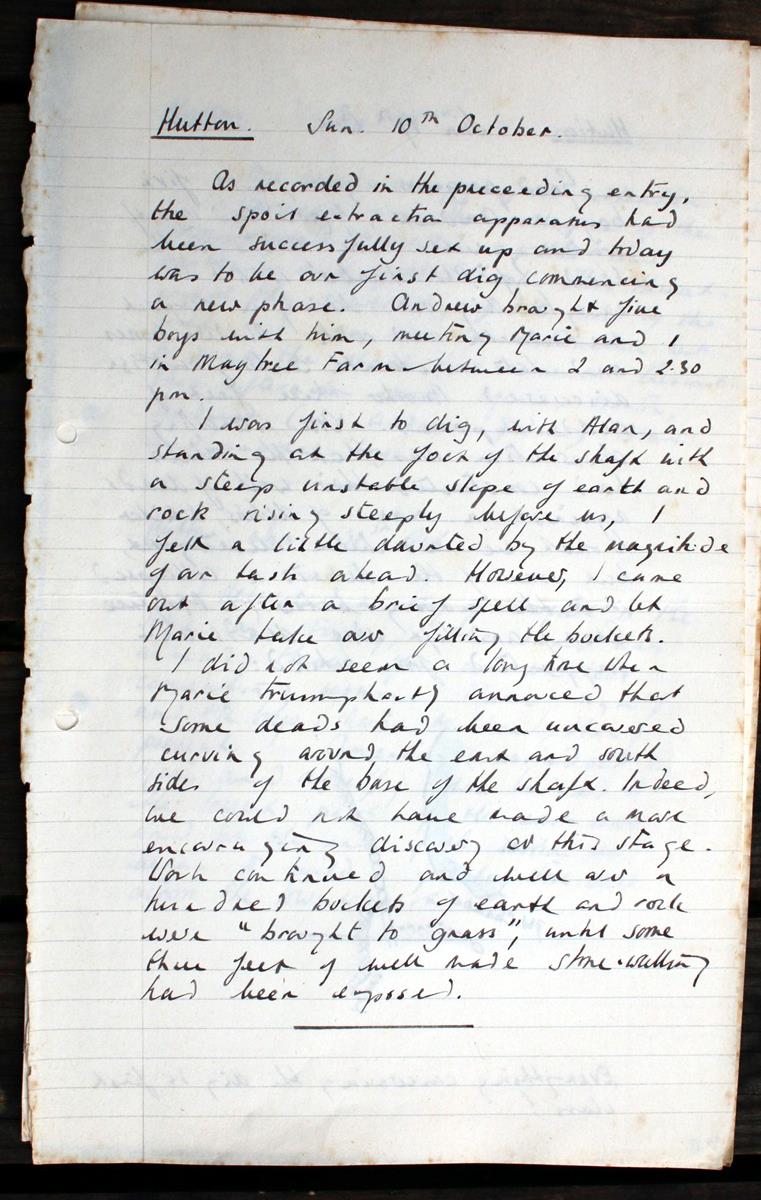 Hutton. Sun. 10th October.
As recorded in the preceeding entry,
the spoil extraction apparatus had
been successfully set up and today
was to be our first dig commencing
a new phase. Andrew brought five
boys with him, meeting Marie and I
in Maytree Farm between 2 and 2.30
pm.
I was first to dig, with Alan, and
standing at the foot of the shaft with
a steep unstable slope of earth and
rock rising steeply before us, I
felt a little daunted by the magnitude
of our task ahead. However, I came
out after a brief spell and let
Marie take over filling the buckets.
I did not seem a long time when
Marie triumphantly announced that
some deads had been uncovered
curving around the east and south
sides of the base of the shaft. Indeed,
we could not have made a more
encouraging discovery at this stage.
Work continued and well over a
hundred buckets of earth and rock
were "brought to grass", until some
three feet of well made stone-walling
had been exposed.